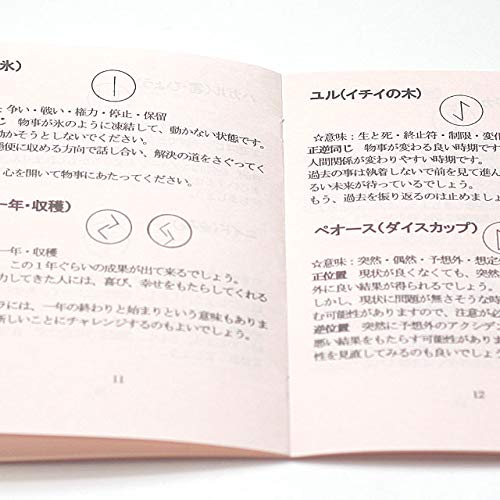 氷)
：争い・戦い・権力・停止・保留
同じ　物事が氷のように凍結して、動かない状態です。
動かそうとしないでください。
穏便に収める方向で話し合い、解決の道をさぐってく
心を開いて物事にあたってください。
一年・収穫)
一年・収穫
この１年ぐらいの成果が出て来るでしょう。
力してきた人には、喜び、幸せをもたらしてくれる
うには、一年の終わりと始まりという意味もありま
新しいことにチャレンジするのもよいでしょう。
11
ユル(イチイの木)
☆意味：生と死・終止符・制限・変化
正逆同じ　物事が変わる良い時期です
人間関係が変わりやすい時期です。
過去の事は執着しないで前を見て進ん
るい未来が待っているでしょう。
もう、過去を振り返るのは止めましょ
ペオース(ダイスカップ)
☆意味：突然・偶然・予想外・想定
正位置　現状が良くなくても、突然
外に良い結果が得られるでしょう。
しかし、現状に問題が無さそうな時
む可能性がありますので、注意が必
逆位置　突然に予想外のアクシデ
悪い結果をもたらす可能性があり
性を見直してみるのも良いでしょ
12